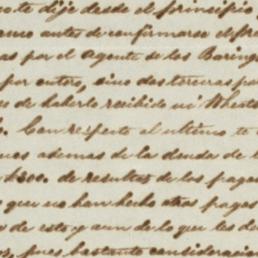 te dije desde el principio,
antes de confirmarse el
as por el Agente de los Baring
por entero, sino dos terceras pa
de haberlo recibido ni Wheat
Con respecto al ultimo te
ademas de la deuda de
$300. de resultas de los pagos
que no han hecho otros pagos
de esto y aun de lo que les de
pues bastante consideracion